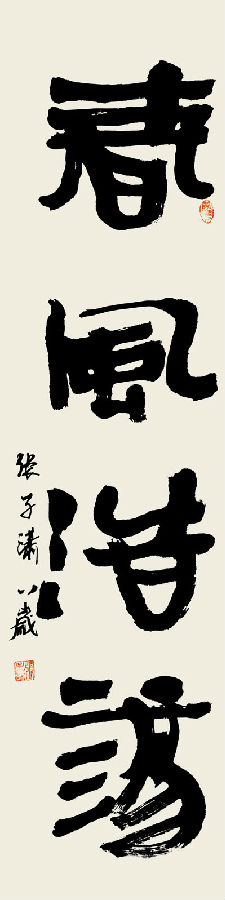 春風浩蕩
張子瀟八歲